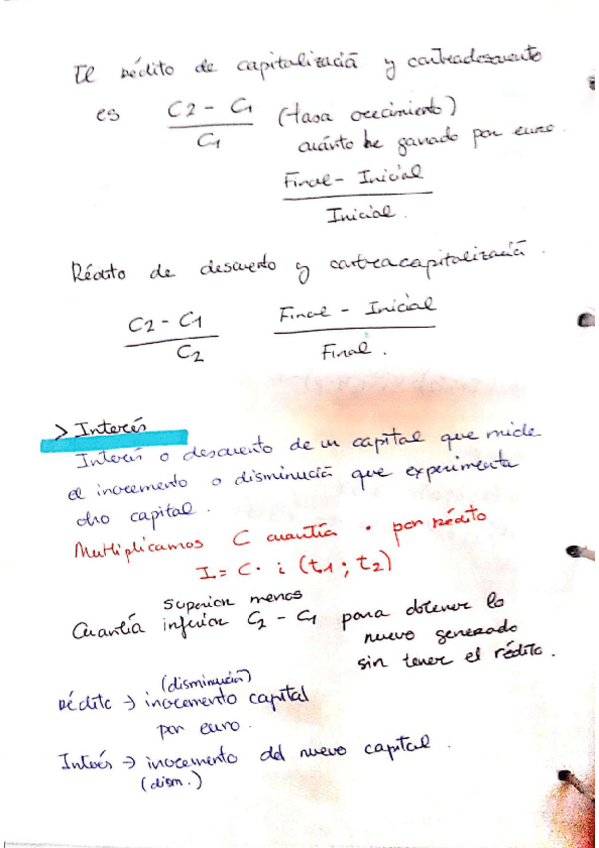 El rédito de capitalización y contradescuento
es C2 - C1 / C1 (tasa crecimiento)
cuánto he ganado por euro.
Final - Inicial / Inicial.
Rédito de descuento y contracapitalización.
C2 - C1 / C2 Final - Inicial / Final.
> Interés
Interés o descuento de un capital que mide
el incremento o disminución que experimenta
dho capital.
Multiplicamos C cuantía · por rédito
I = C · i (t1 ; t2)
Superior menos
Cuantía inferior C2 - C1 para obtener lo
nuevo generado
sin tener el rédito.
(disminución)
Rédito → incremento capital
por euro.
Interés → incremento del nuevo capital.
(dism.)